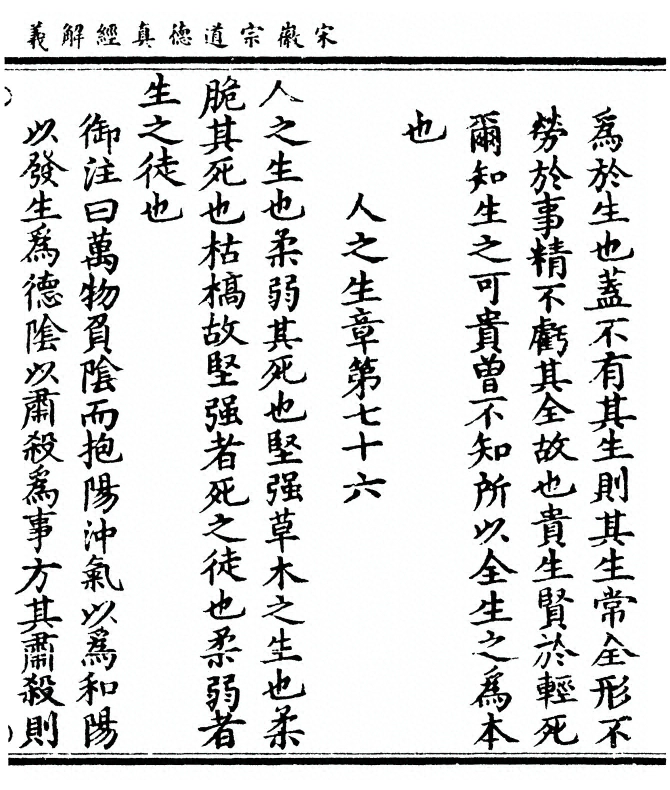 宋徽宗道德真經解義
爲於生也蓋不有其生則其生常全形不
勞於事精不虧其全故也貴生賢於輕死
爾知生之可貴曾不知所以全生之爲本
也
人之生章第七十六
人之生也柔弱其死也堅强草木之生也柔
脆其死也枯槁故堅强者死之徒也柔弱者
生之徒也
御注曰萬物負陰而抱陽沖氣以爲和陽
以發生爲德陰以肅殺爲事方其肅殺則